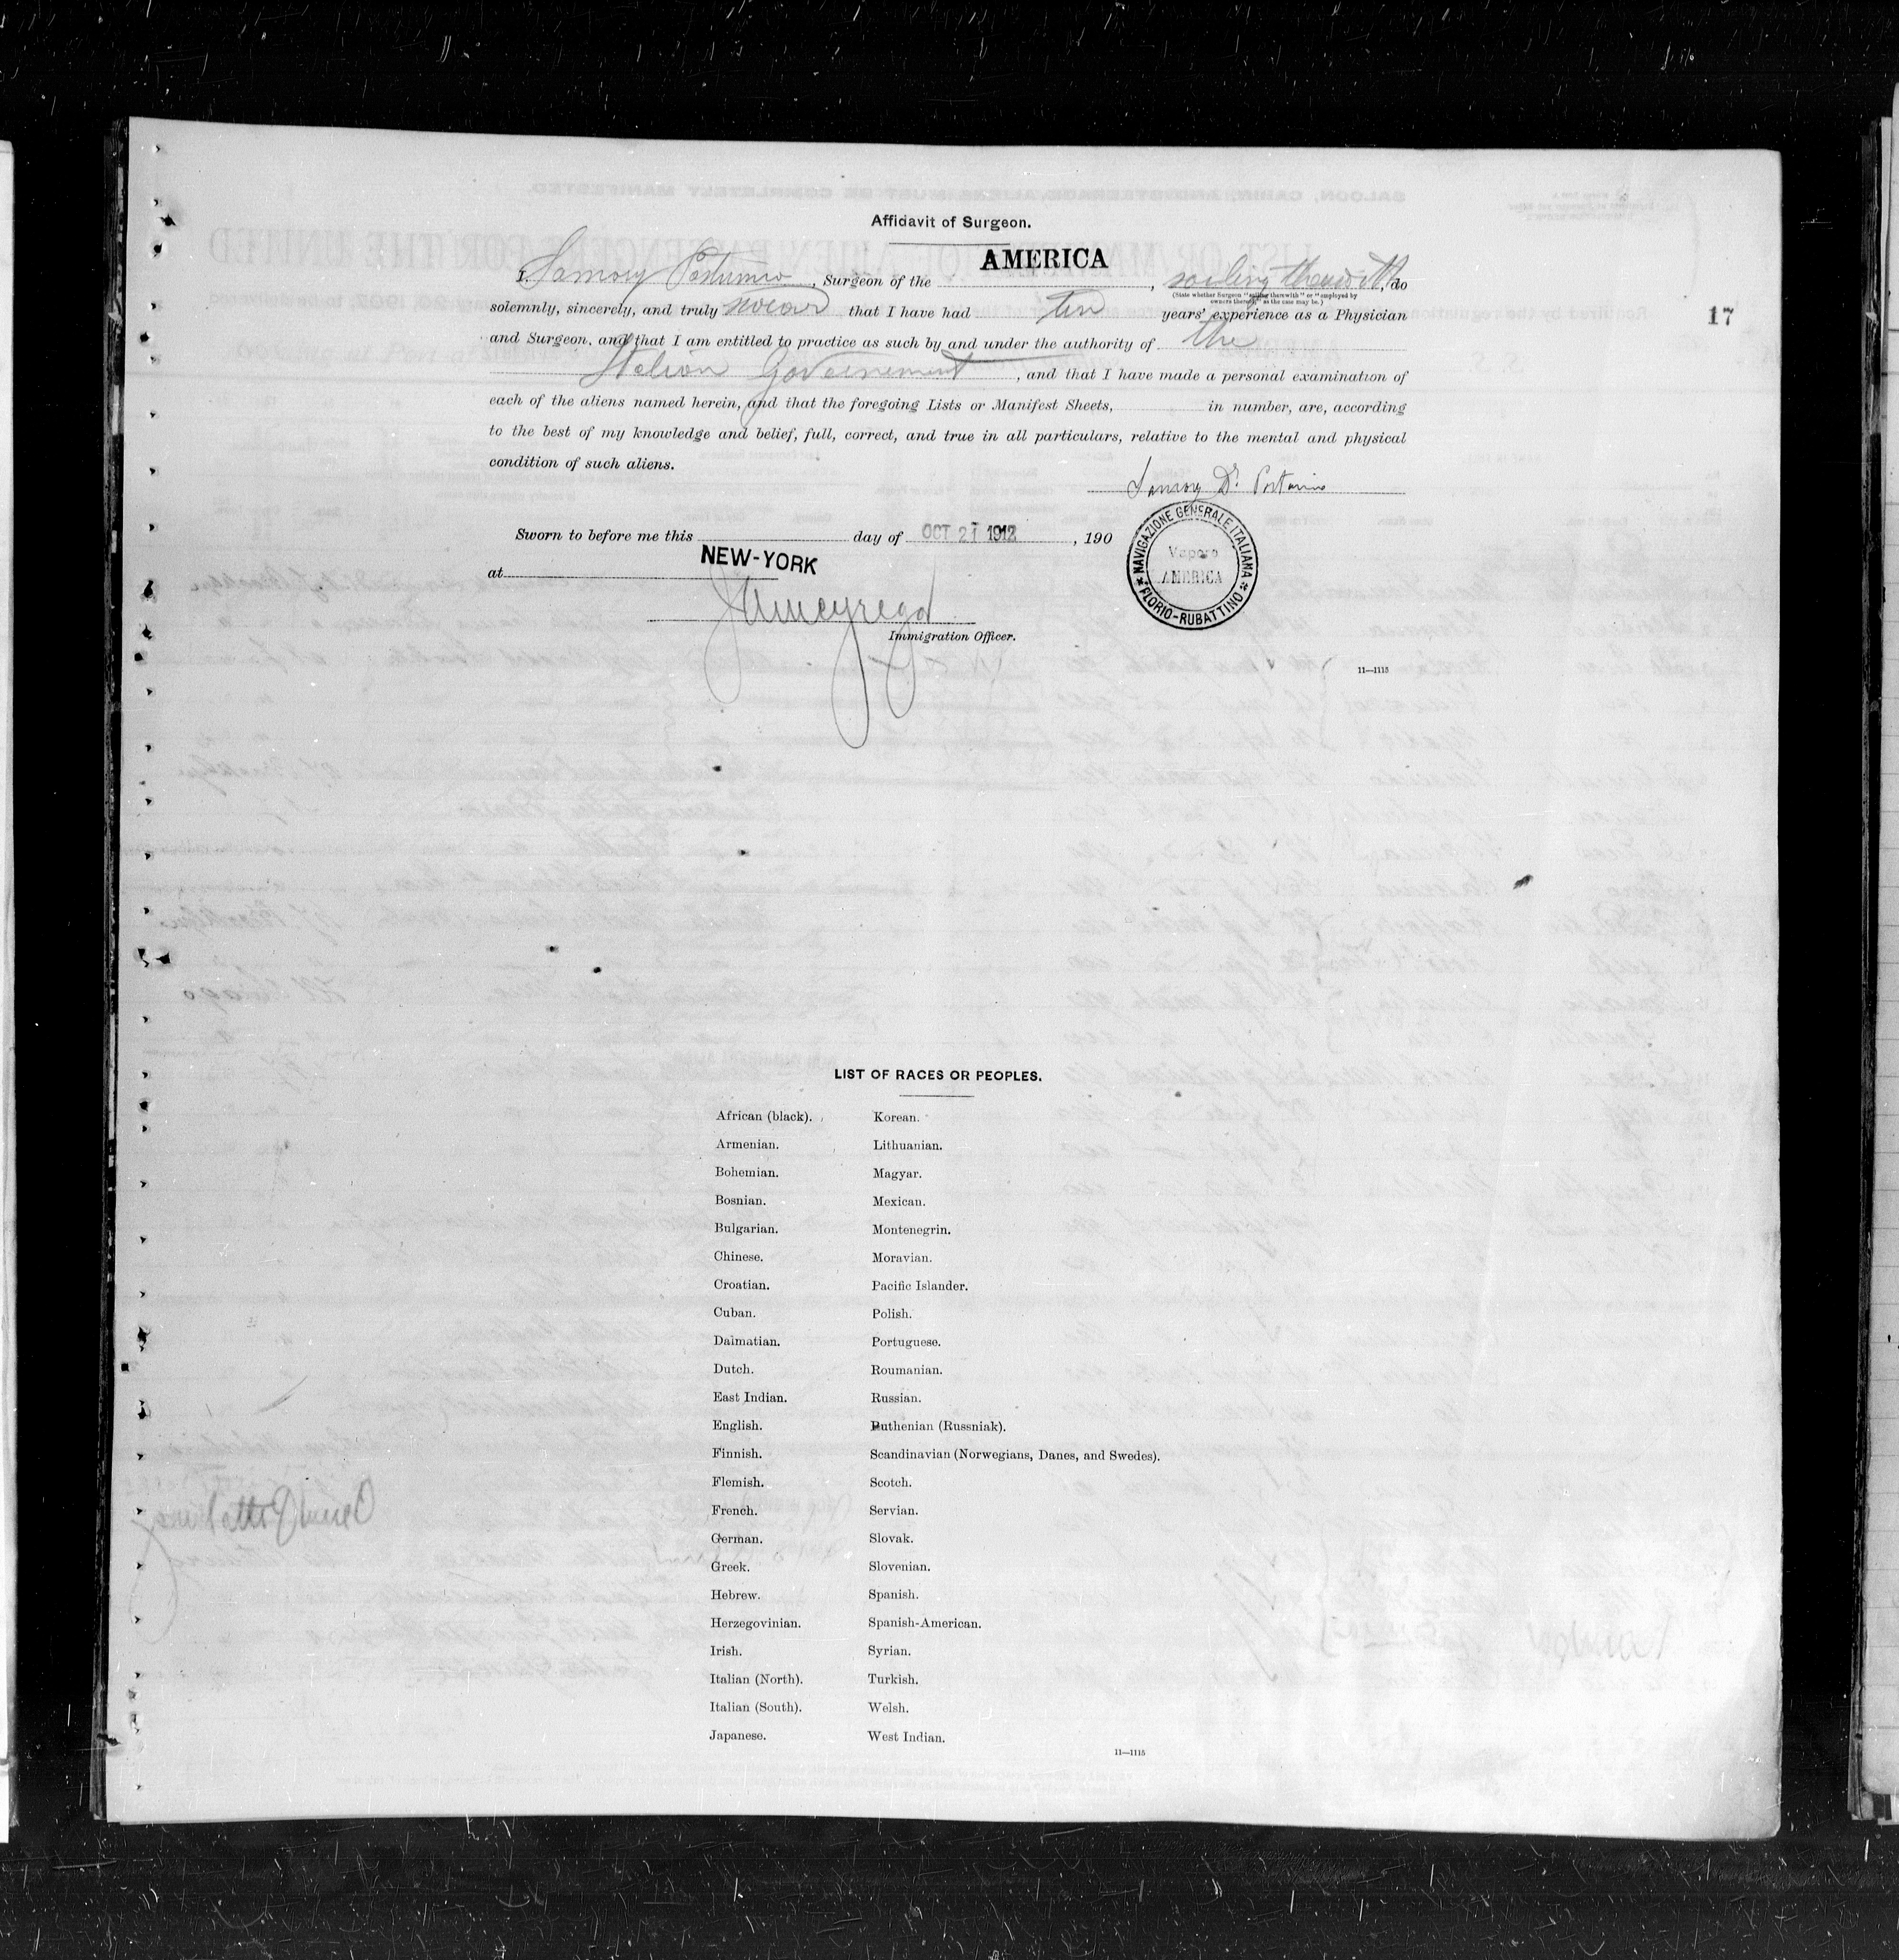 Affidavit of Surgeon.
AMERICA
I, , Surgeon of the , sailing therewith, do
(State whether Surgeon "sailing therewith" or "employed by
owners thereof," as the case may be.)
solemnly, sincerely, and truly swear that I have had ten years' experience as a Physician
and Surgeon, and that I am entitled to practice as such by and under the authority of the
Italian Governement, and that I have made a personal examination of
each of the aliens named herein, and that the foregoing Lists or Manifest Sheets, in number, are, according
to the best of my knowledge and belief, full, correct, and true in all particulars, relative to the mental and physical
condition of such aliens.
Sworn to before me this day of OCT 21 1912, 190
at NEW-YORK
Immigration Officer.
NAVIGAZIONE GENERALE ITALIANA
Vapore
AMERICA
FLORIO-RUBATTINO
11—1115
17
LIST OF RACES OR PEOPLES.
African (black).
Armenian.
Bohemian.
Bosnian.
Bulgarian.
Chinese.
Croatian.
Cuban.
Dalmatian.
Dutch.
East Indian.
English.
Finnish.
Flemish.
French.
German.
Greek.
Hebrew.
Herzegovinian.
Irish.
Italian (North).
Italian (South).
Japanese.
Korean.
Lithuanian.
Magyar.
Mexican.
Montenegrin.
Moravian.
Pacific Islander.
Polish.
Portuguese.
Roumanian.
Russian.
Ruthenian (Russniak).
Scandinavian (Norwegians, Danes, and Swedes).
Scotch.
Servian.
Slovak.
Slovenian.
Spanish.
Spanish-American.
Syrian.
Turkish.
Welsh.
West Indian.
11—1115